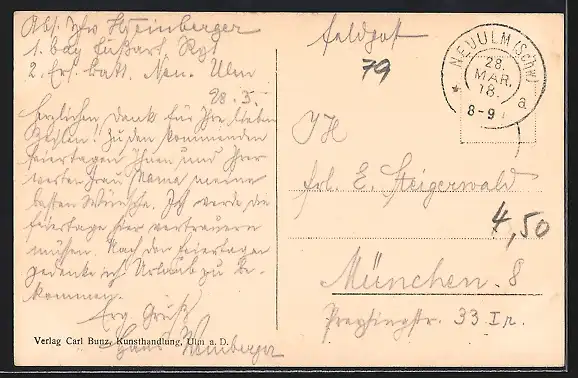 Abs. Vfw Weinberger
1. bay Fußart. Rgt
2. Ers. Batt. Neu. Ulm
28. 3.
Herzlichen Dank für Ihre lieben
Zeilen!! Zu den kommenden
Feiertagen Ihnen und Ihrer
werten Frau Mama meine
besten Wünsche. Ich werde die
Feiertage hier vertrauern
müssen. Nach den Feiertagen
gedenke ich Urlaub zu be-
kommen.
Erg. Gruß
Hans Weinberger
Verlag Carl Bunz, Kunsthandlung, Ulm a. D.
Feldpost
79
NEUULM (Schw)
28.
MÄR.
18.
8-9
a
frl. E. Steigerwald
4,50
München. 8
Preysingstr. 33 I r.